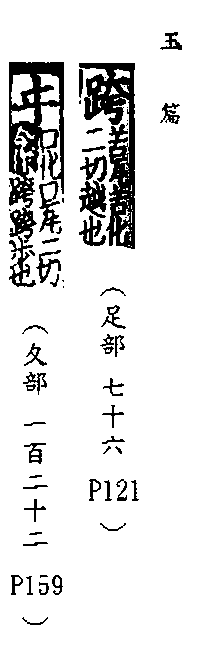 玉篇
跨苦苦化
二切越也
（足部 七十六 P121）
㐄口化口瓦二切
跨跨步也
（夂部 一百二十二 P159）